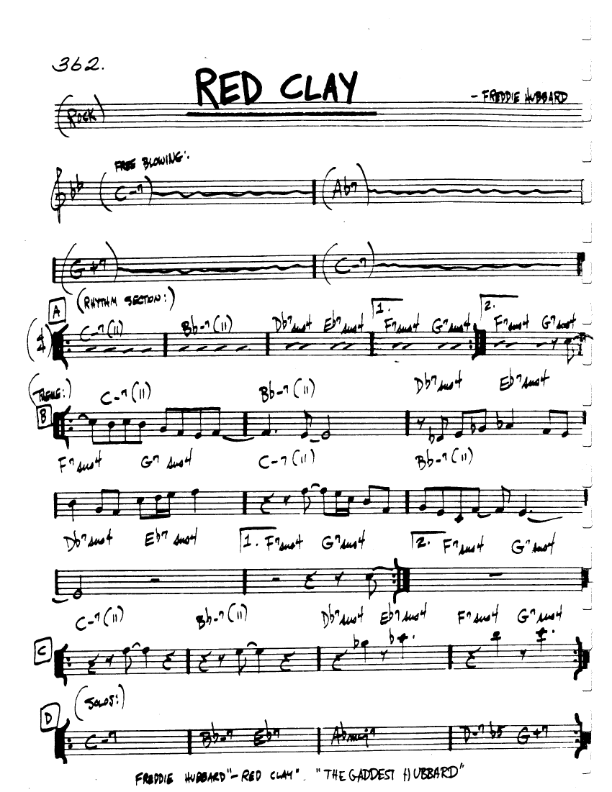 362.
RED CLAY
- FREDDIE HUBBARD
(ROCK)
FREE BLOWING:
(C-7) (Ab7)
(G+7) (C-7)
A (RHYTHM SECTION:)
C-7(11) Bb-7(11) Db7sus4 Eb7sus4 1. F7sus4 G7sus4 2. F7sus4 G7sus4
(4/4)
(THEME:)
B C-7(11) Bb-7(11) Db7sus4 Eb7sus4
F7sus4 G7sus4 C-7(11) Bb-7(11)
Db7sus4 Eb7sus4 1. F7sus4 G7sus4 2. F7sus4 G7sus4
C-7(11) Bb-7(11) Db7sus4 Eb7sus4 F7sus4 G7sus4
C
D (SOLOS:)
C-7 Bb-7 Eb7 Abmaj7 D-7b5 G+7
FREDDIE HUBBARD"-RED CLAY". "THE GADDEST HUBBARD"